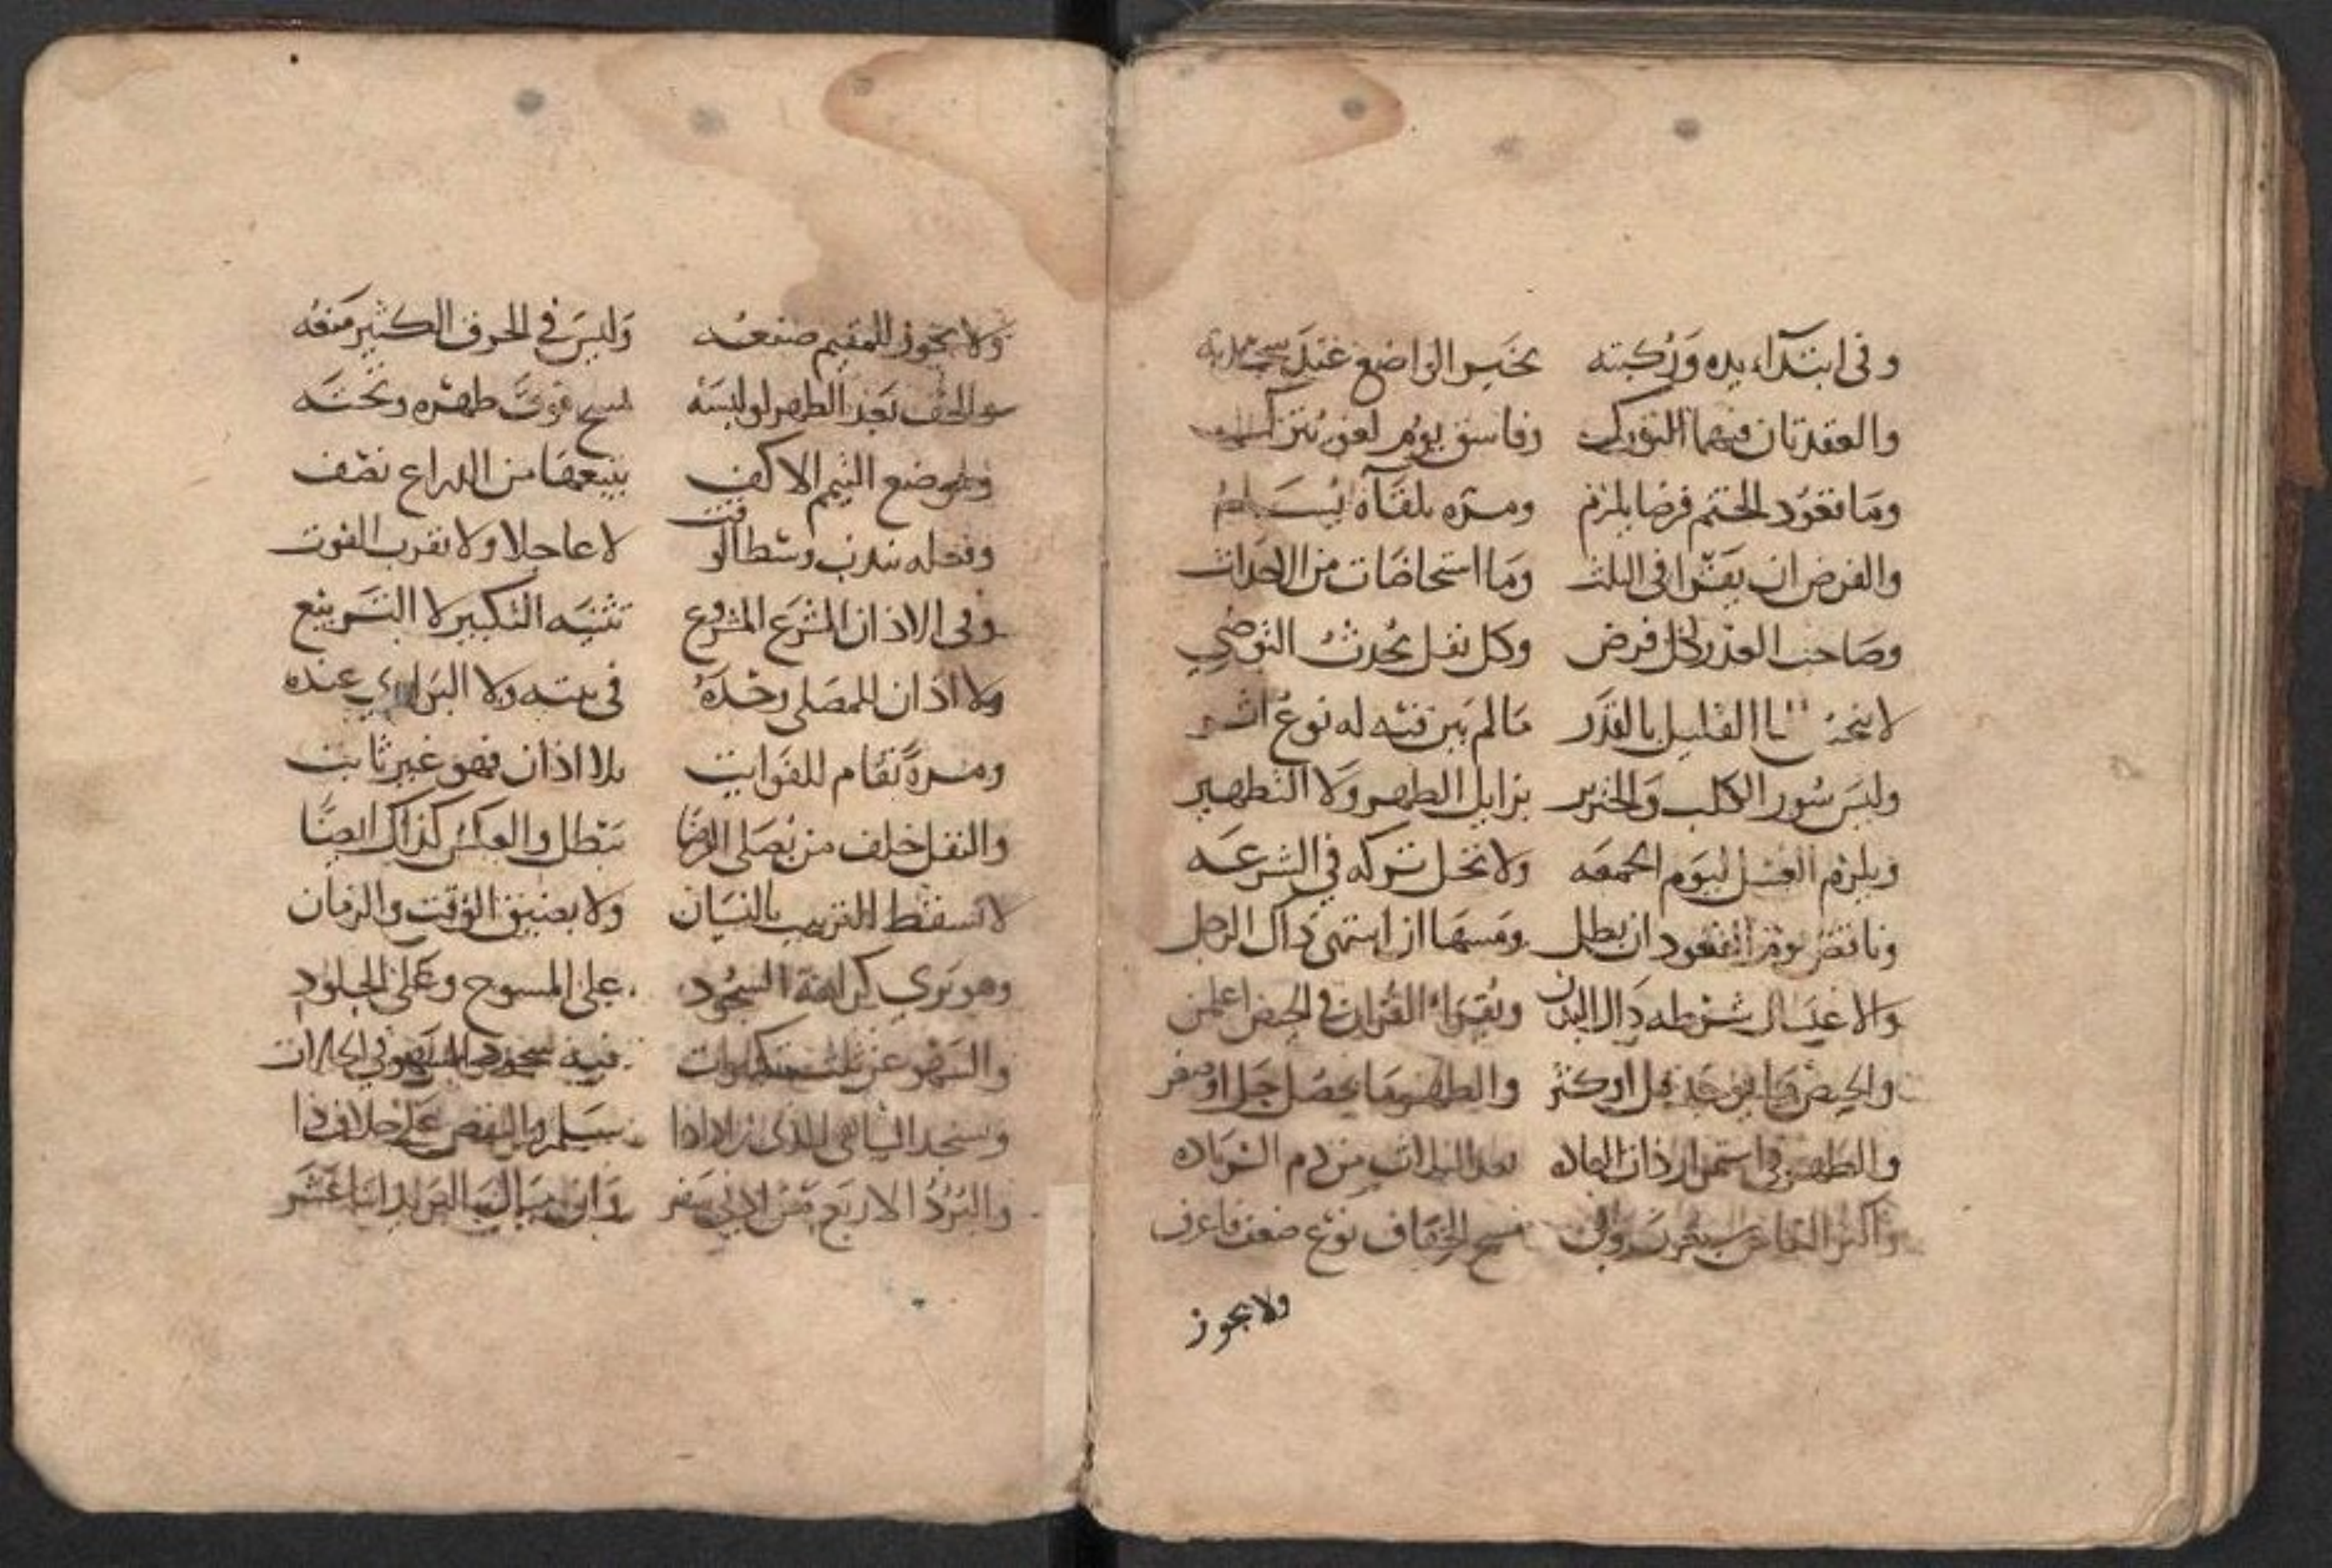 وفى ابتداء يده وركبته يخير الواضع عند سجدته
والعقدتان فيهما التورك وفاسق يوم لعور تترك
وما قعود الختم فرضا يلزم ومره تلقاه يسلم
والفرض ان يقرا فى الثلث وما استحاضات من الاحداث
وصاحب العذر لكل فرض وكل نفل يحدث التوضي
لا ينجس الما القليل بالقذر مالم يبن فيه له نوع اثر
وليس سور الكلب والخنزير يزايل الطهر ولا التطهير
ويلزم الغسل ليوم الجمعه ولا تحل تركه في الشرعه
وناقض نوم القعود ان يطل ومسها ان اشتهى ذاك الرجل
والاغتسال شرطه دلك البدن ويقرا القران في الحيض اعلمن
والحيض ما يوجد قل او كثر والطهر ما يحصل جل او صغر
والطهر في استمرار ذات العاده بعد الثلاث من دم الزياده
واكثر النفاس سبعون وفى مسح الخفاف نوع ضعف فاعرف
ولا يجوز
ولا يجوز للمقيم صنعه وليس في الخرق الكثير منعه
والخف بعد الطهر لو لبسه مسح فوق ظهره وتحته
وموضع التيمم الاكف يتبعها من الذراع نصف
وفعله يندب وسطا لوقت لا عاجلا ولا بقرب الفوت
وفى الاذان المشرع المشروع تثنيه التكبير لا التربيع
ولا اذان للمصلى وحده فى بيته ولا البرارى عنده
ومرة تقام للفوايت بلا اذان فهو غير ثابت
والنفل خلف من يصلى الفرضا يبطل والعكس كذاك ايضا
لا تسقط الترتيب بالنسيان ولا بضيق الوقت والزمان
وهو يرى كراهة السجود على المسوح وعلى الجلود
والسهو عن ثلث تكبيرات فيه سجود السهو في
ويسجد الساهى الذى زاد اذا سلم والنقص على خلاف ذا
والبرد الاربع من ادنى سفر وان ميال البريد اثنا عشر